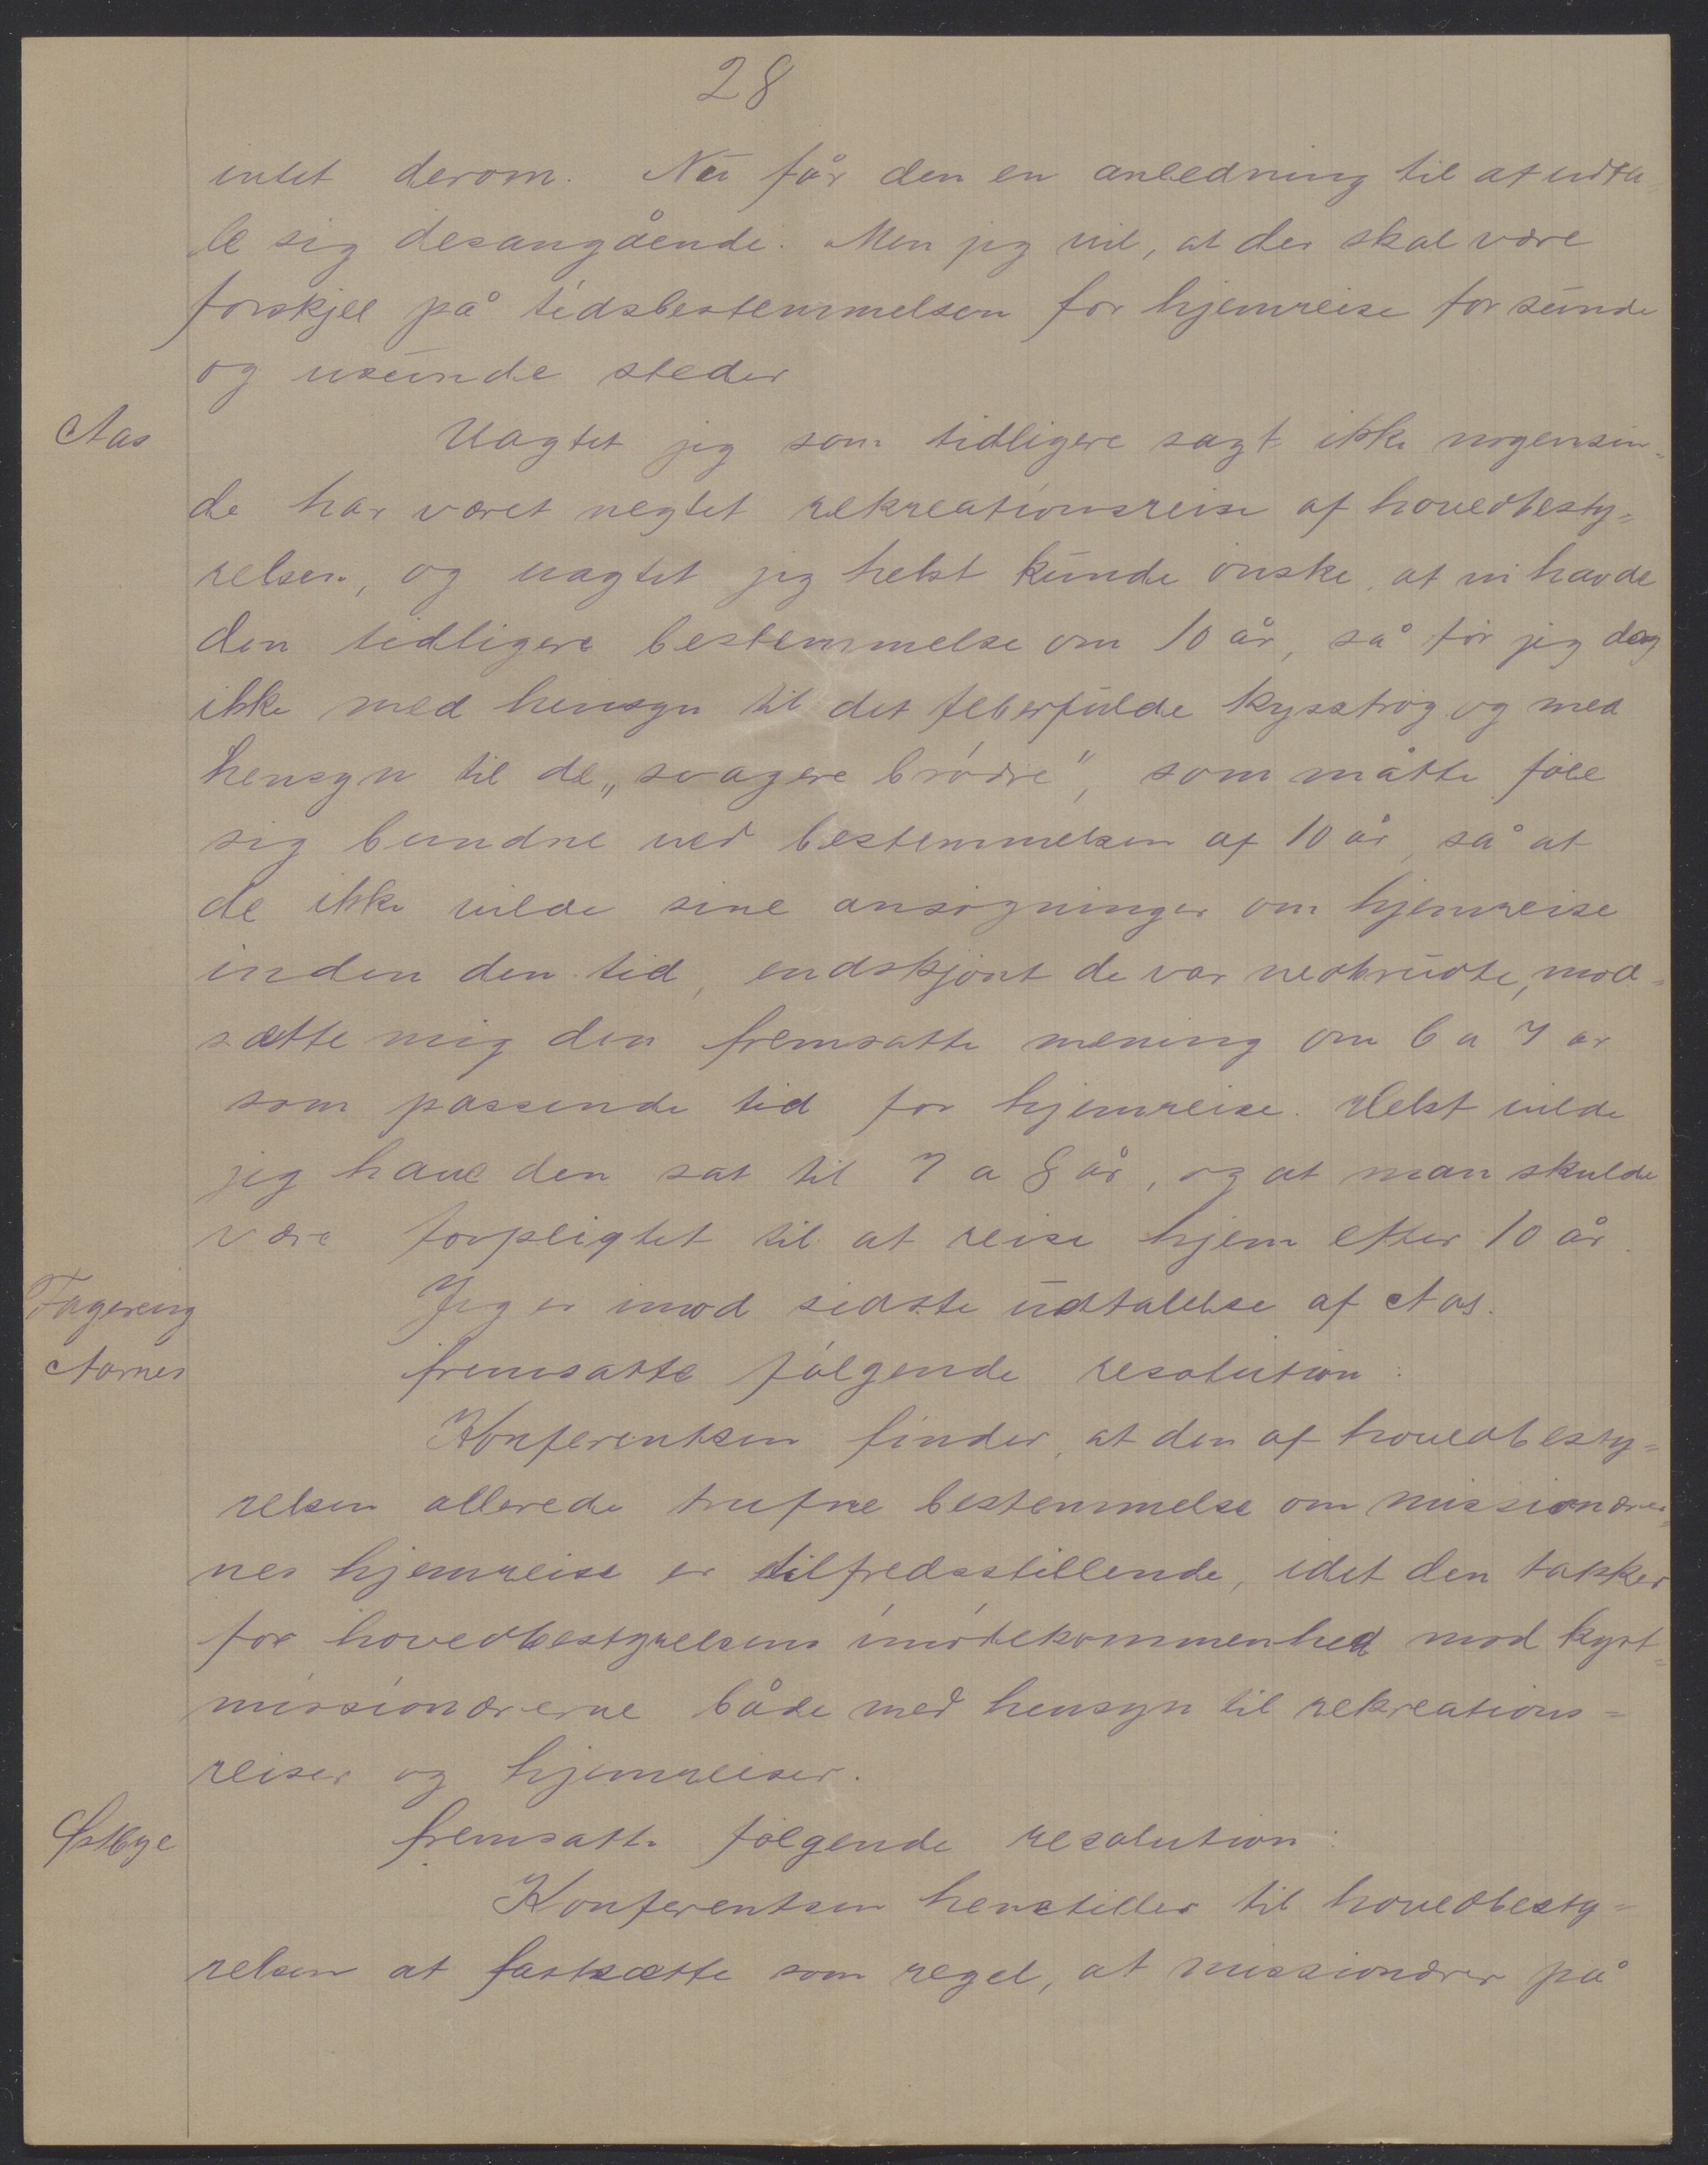 28
intet derom. Nu får den en anledning til at udta-
le sig desangående. Men jeg vil, at der skal være
forskjel på tidsbestemmelsen for hjemreise for sunde
og usunde steder
Aas Uagtet jeg som tidligere sagt ikke nogensin=
de har været negtet rekreationsreise af hovedbesty=
relsen, og uagtet jeg helst kunde ønske, at vi havde
den tidligere bestemmelse om 10 år, så tør jeg dog
ikke med hensyn til det feberfulde kyststrøg og med
hensyn til de „svagere brødre", som måtte føle
sig bundne ved bestemmelsen af 10 år, så at
de ikke vilde sine ansøgninger om hjemreise
inden den tid, endskjønt de var nedbrudte, mod=
sætte mig den fremsatte mening om 6 a 7 år
som passende tid for hjemreise. Helst vilde
jeg have den sat til 7 a 8 år, og at man skulde
være forpligtet til at reise hjem efter 10 år.
Fagereng Jeg er imod sidste udtalelse af Aas.
Aarnes fremsatte følgende resolution:
Konferentsen finder, at den af hovedbesty=
relsen allerede trufne bestemmelse om missionærer=
nes hjemreise er tilfredsstillende, idet den takker
for hovedbestyrelsens imødekommenhed mod kyst=
missionærerne både med hensyn til rekreations=
reiser og hjemreiser.
Østbye fremsatte følgende resolution:
Konferentsen henstiller til hovedbesty=
relsen at fastsætte som regel, at missionærer på